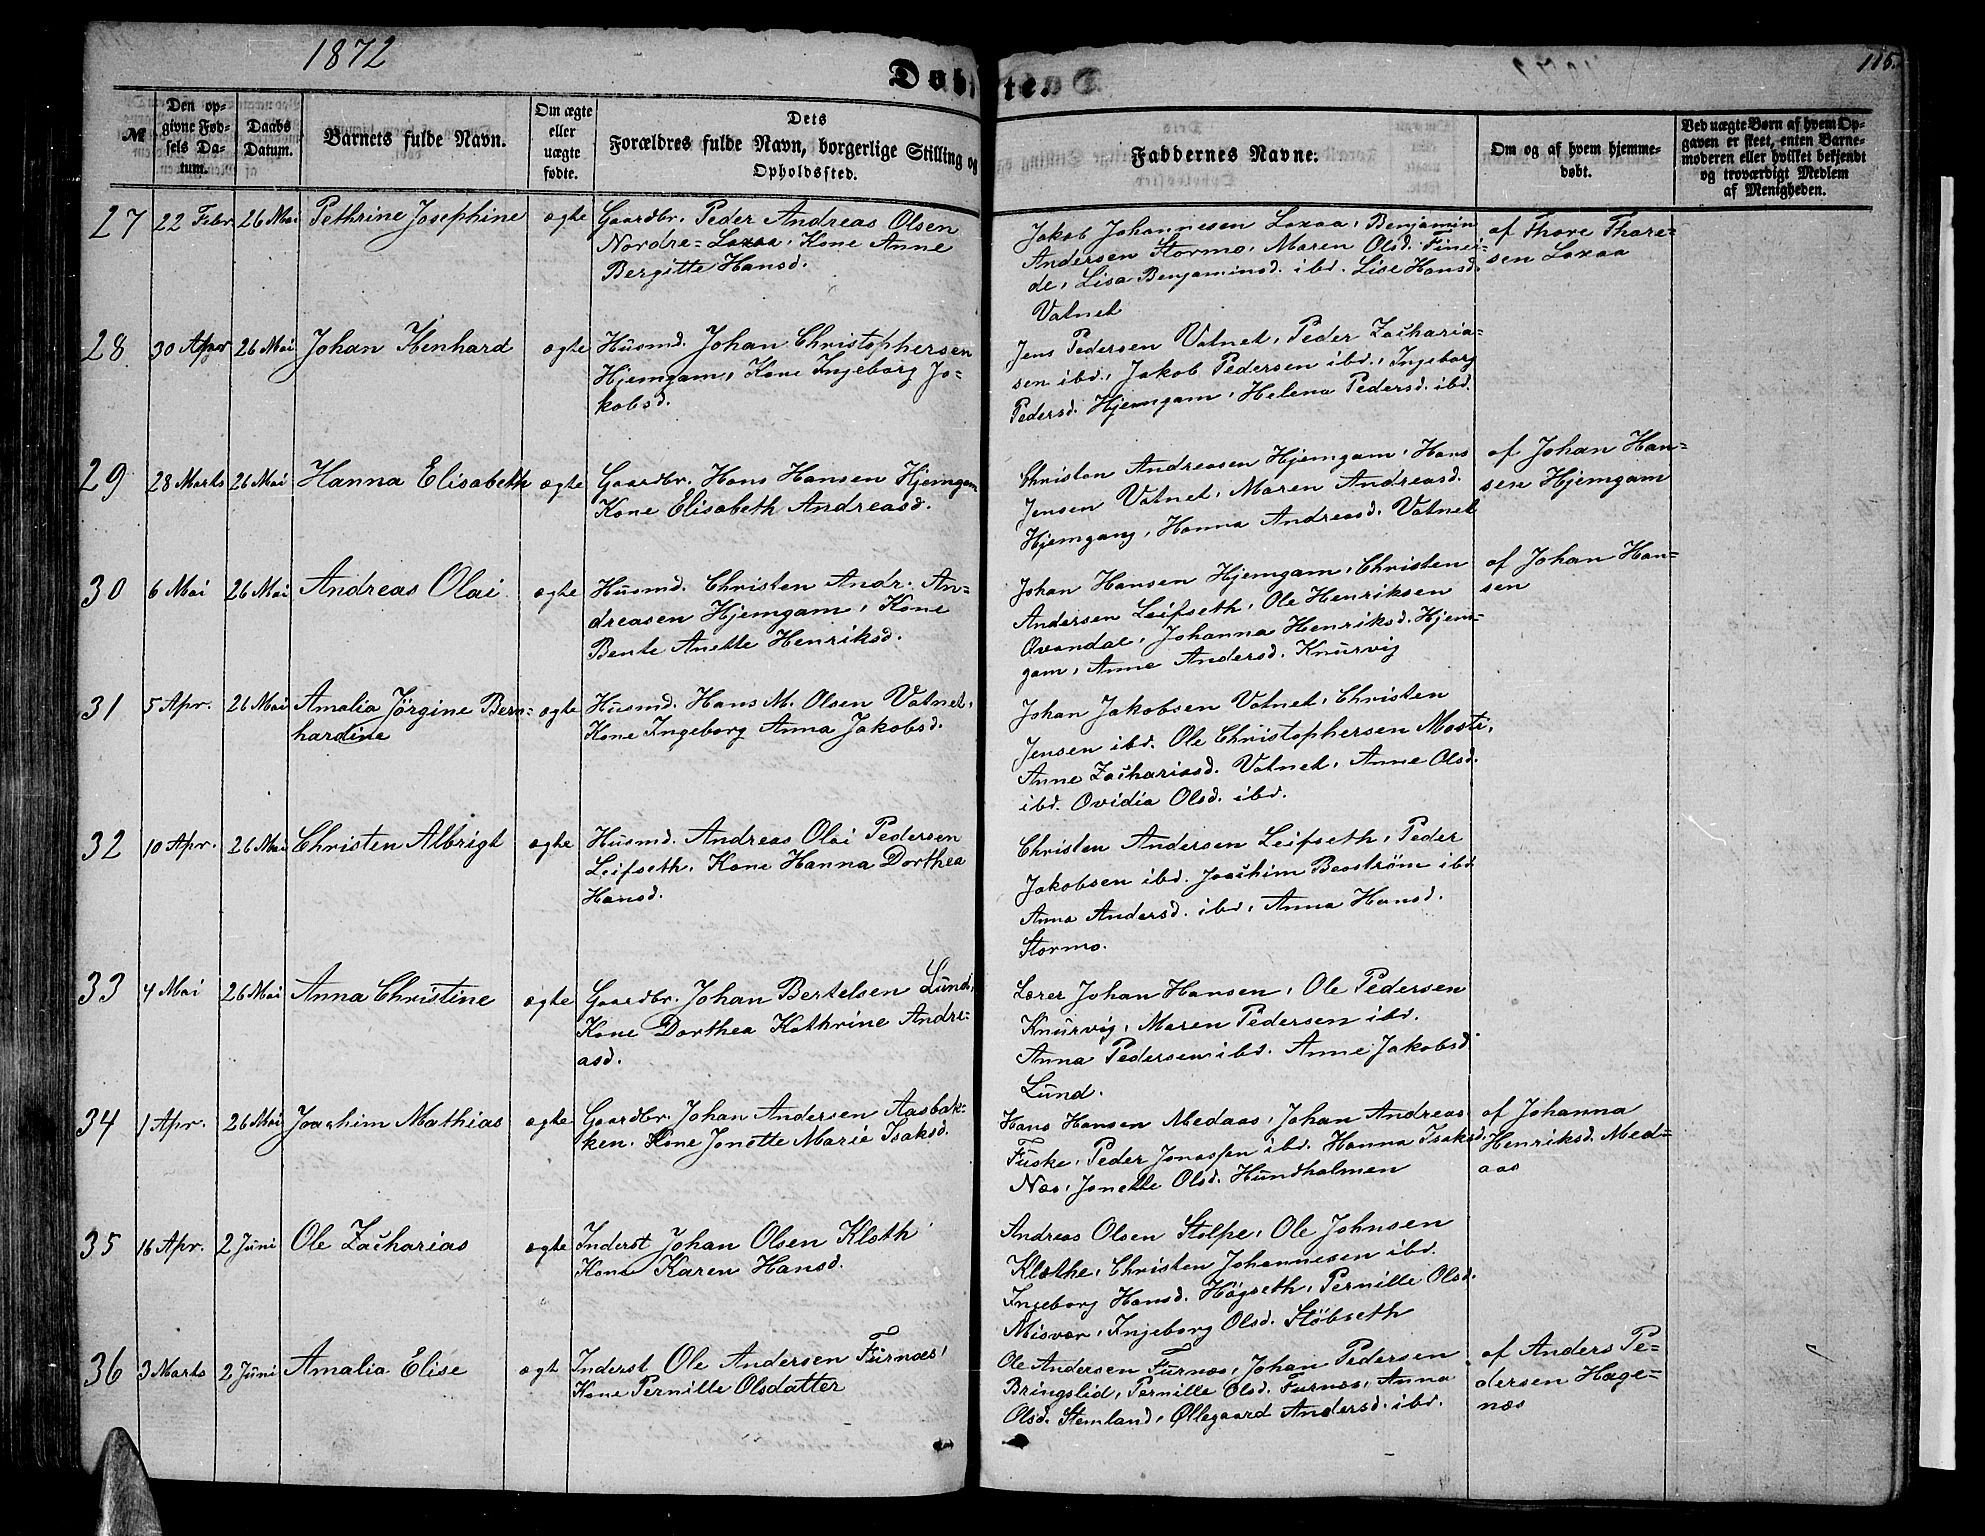 1872
115.
Døbte.
№
Den op-
givne Fød-
sels Da-
tum.
Daabs
Datum.
Barnets fulde Navn.
Om ægte
eller
uægte
fødte.
Dets
Forældres fulde Navn, borgerlige Stilling og
Opholdssted.
Faddernes Navne.
Om og af hvem hjemme-
døbt.
Ved uægte Børn af hvem Op-
gaven er skeet, enten Barne-
moderen eller hvilket bekjendt
og troværdigt Medlem
af Menigheden.
27 22 Febr 26 Mai Pethrine Josephine ægte Gaardbr. Peder Andreas Olsen
Nordre-Loxaa, Kone Anne
Bergitte Hansd.
Jakob Johannesen Loxaa, Benjamin
Andersen Stormo, Maren Olsd. Finei-
de, Lisa Benjaminsd. ibd. Lise Hansd.
Vatnet
af Thore Thore-
sen Loxaa
28 30 Apr 26 Mai Johan Henhard ægte Husmd. Johan Christophersen
Hjemgam, Kone Ingeborg Ja-
kobsd.
Jens Pedersen Vatnet, Peder Zacharia-
sen ibd., Jakob Pedersen ibd., Ingeborg
Pedersd. Hjemgam, Helena Pedersd. ibd.
29 28 Marts 26 Mai Hanna Elisabeth ægte Gaardbr. Hans Hansen Hjemgam
Kone Elisabeth Andreasd.
Christen Andreasen Hjemgam, Hans
Jensen Vatnet, Maren Andreasd.
Hjemgang, Hanna Andreasd. Vatnet
af Johan Han-
sen Hjemgam
30 6 Mai 26 Mai Andreas Olai ægte Husmd. Christen Andr. An-
dreasen Hjemgam, Kone
Bente Anette Henriksd.
Johan Hansen Hjemgam, Christen
Andersen Leifseth, Ole Henriksen
Øvandal, Johanna Henriksd. Hjem-
gam, Anne Andersd. Knurvig
af Johan Han-
sen
31 5 Apr. 26 Mai Amalia Jörgine Bern-
hardine
ægte Husmd. Hans M. Olsen Vatnet,
Kone Ingeborg Anna Jakobsd.
Johan Jakobsen Vatnet, Christen
Jensen ibd. Ole Christophersen Mosti,
Anne Zachariasd. Vatnet, Anne Olsd.
ibd. Ovidia Olsd. ibd.
32 10 Apr. 26 Mai Christen Albrigt ægte Husmd. Andreas Olai Pedersen
Leifseth, Kone Hanna Dorthea
Hansd.
Christen Andersen Leifseth, Peder
Jakobsen ibd. Joachim Beostrøm ibd
Anna Andersd. ibd, Anna Hansd.
Stormo.
33 4 Mai 26 Mai Anna Christine ægte Gaardbr. Johan Bertelsen Lund,
Kone Dorthea Kathrine Andre-
asd.
Lærer Johan Hansen, Ole Pedersen
Knurvig, Maren Pedersen ibd.
Anna Pedersen ibd. Anne Jakobsd
Lund.
34 1 Apr. 26 Mai Joachim Mathias ægte Gaardbr. Johan Andersen Aasbak-
ken. Kone Jonette Marie Isaksd.
Hans Hansen Medaas, Johan Andreas
Fuske, Peder Jonassen ibd. Hanna Isaksd.
Næs, Jonette Olsd. Hundholmen
af Johanna
Henriksd. Med-
aas
35 16 Apr. 2 Juni Ole Zacharias ægte Inderst Johan Olsen Kløth
Kone Karen Hansd.
Andreas Olsen Stolpe, Ole Johnsen
Kløthe, Christen Johannesen ibd.
Ingeborg Hansd. Høgseth, Pernille Olsd.
Misvær, Ingeborg Olsd. Støbseth
36 3 Marts 2 Juni Amalia Elise ægt Inderst Ole Andersen Furnæs,
Kone Pernille Olsdatter
Ole Andersen Furnæs, Johan Pedersen
Bringslid, Pernille Olsd. Furnæs, Anna
Olsd. Stemland, Øllegaard Andersd. ibd.
af Anders Pe-
dersen Hage-
næs